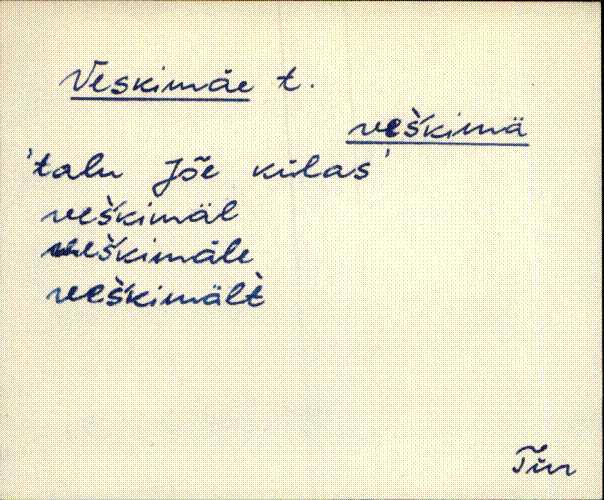 Veskimäe t.
veš́kimä
'talu Jõe külas'
veš́kimäl
veš́kimäle
veš́kimält̀
Tür